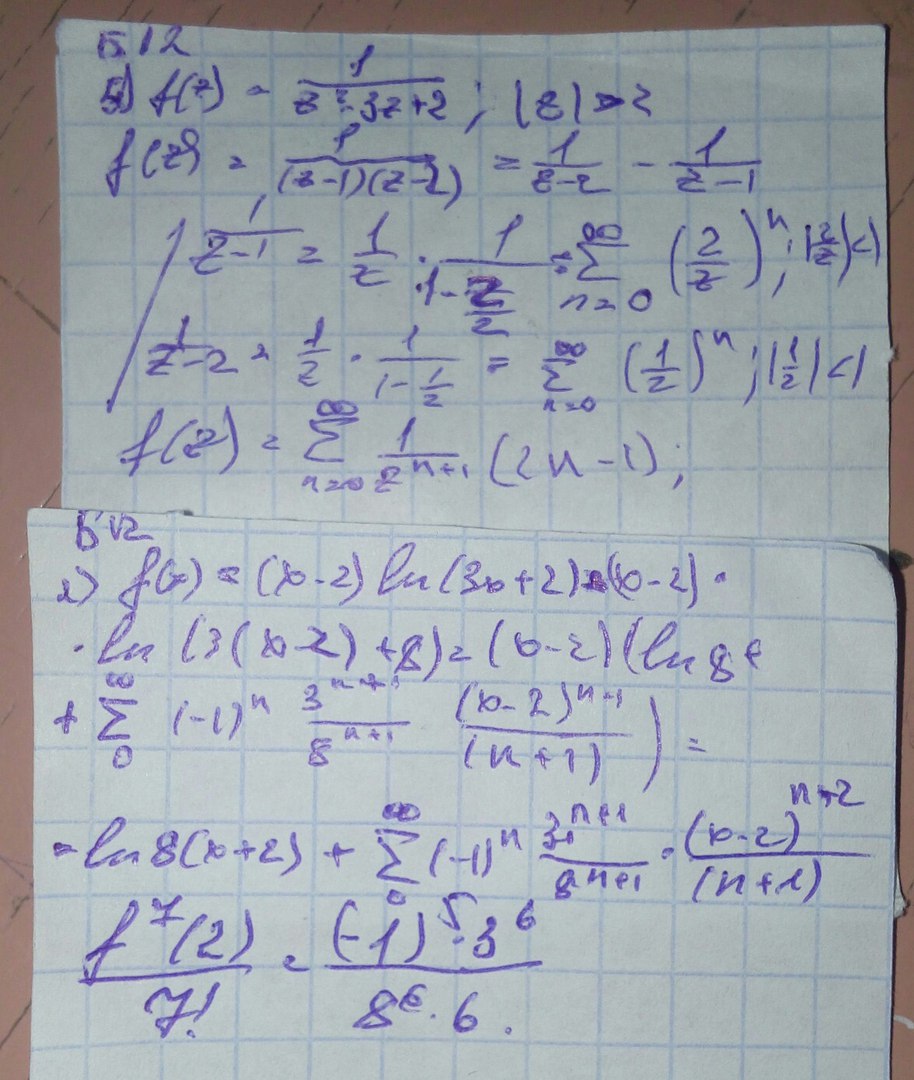 Б 12
5) f(z) = 1/(z² - 3z + 2); |z| > 2
f(z) = 1/((z-1)(z-2)) = 1/(z-2) - 1/(z-1)
1/(z-1) = 1/z · 1/(1 - z/2) = ∑_{n=0}^{∞} (2/z)^n; |2/z| < 1
1/(z-2) = 1/z · 1/(1 - 1/z) = ∑_{n=0}^{∞} (1/z)^n; |1/z| < 1
f(z) = ∑_{n=0}^{∞} 1/z^{n+1} (2n - 1);
Б 12
2) f(x) = (x-2) ln(3x+2) = (x-2) ·
· ln (3(x-2)+8) = (x-2)(ln 8 +
+ ∑_{0}^{∞} (-1)^n 3^{n+1}/8^{n+1} (x-2)^{n+1}/(n+1)) =
= ln 8(x+2) + ∑_{0}^{∞} (-1)^n 3^{n+1}/8^{n+1} · (x-2)^{n+2}/(n+1)
f^7(2)/7! = (-1)^5 · 3^6/(8^6 · 6).